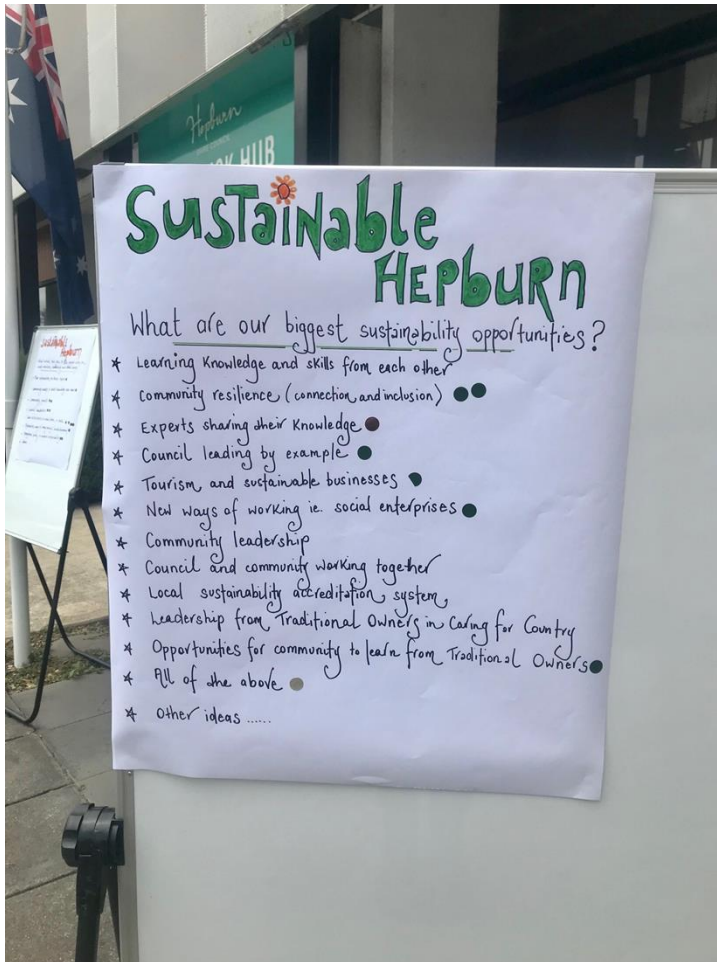 Hepburn
HUB
SUSTaiNable
HEPbURN
What are our biggest sustainability opportunities?
* Learning Knowledge and skills from each other
* Community resilience (connection and inclusion)
* Experts sharing their Knowledge
* Council leading by example
* Tourism and sustainable businesses
* New ways of working ie. social enterprises
* Community leadership
* Council and community working together
* Local sustainability accreditation system
* Leadership from Traditional Owners in Caring for Country
* Opportunities for community to learn from Traditional Owners
* All of the above
* Other ideas ......
Sustainable
Hepburn